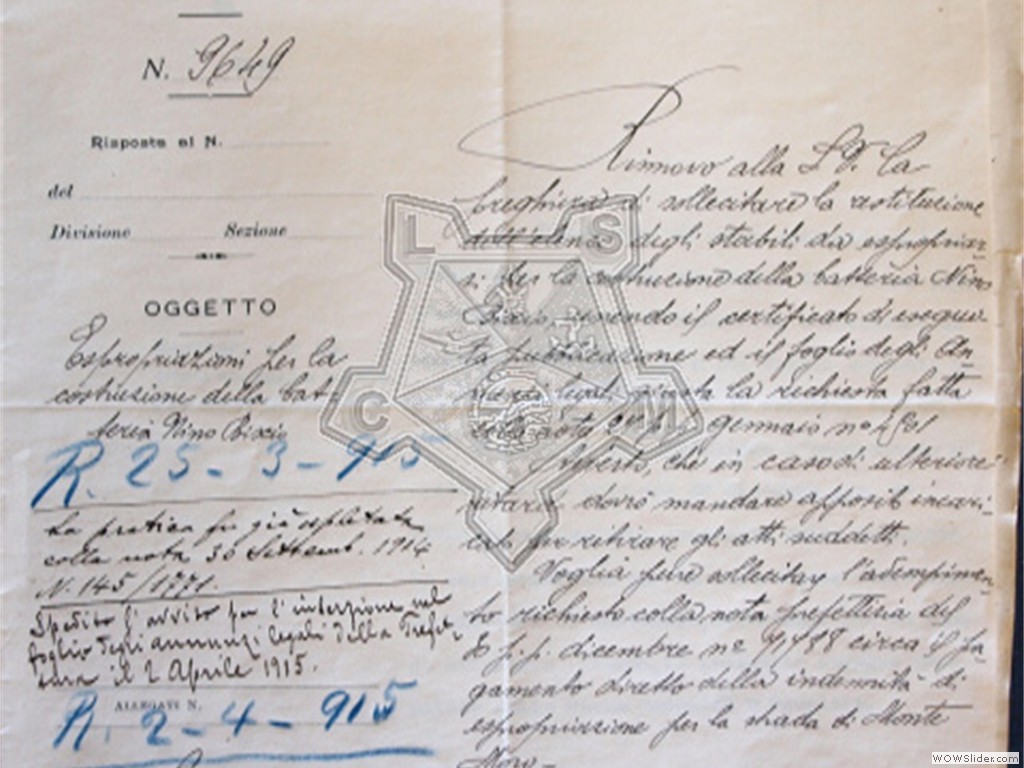 N. 9649
Risposta al N.
del
Divisione Sezione
OGGETTO
Espropriazioni per la
costruzione della bat-
teria Nino Bixio
R. 25-3-915
La pratica fu già espletata
colla nota 30 Settemb. 1914
N. 145/1771.
Spedito l'avviso per l'inserzione nel
foglio degli annunzi legali della Prefet-
tura il 2 Aprile 1915.
ALLEGATI N.
R. 2-4-915
Rinnovo alla S. V. la
preghiera di sollecitare la restituzione
dell'elenco degli stabili da espropriar-
si per la costruzione della batteria Nino
Bixio, unendo il certificato di esegui-
ta pubblicazione ed il foglio degli An-
nunzi legali giusta la richiesta fatta
colla nota gennaio nº
Avverto, che in caso di ulteriore
ritardo dovrò mandare apposito incari-
cato per ritirare gli atti suddetti.
Voglia pure sollecitare l'adempimen-
to richiesto colla nota prefettizia del
p.p. dicembre nº 41788 circa il pa-
gamento diretto della indennità di
espropriazione per la strada di Monte
Moro.-
L S
C M
WOWSlider.com